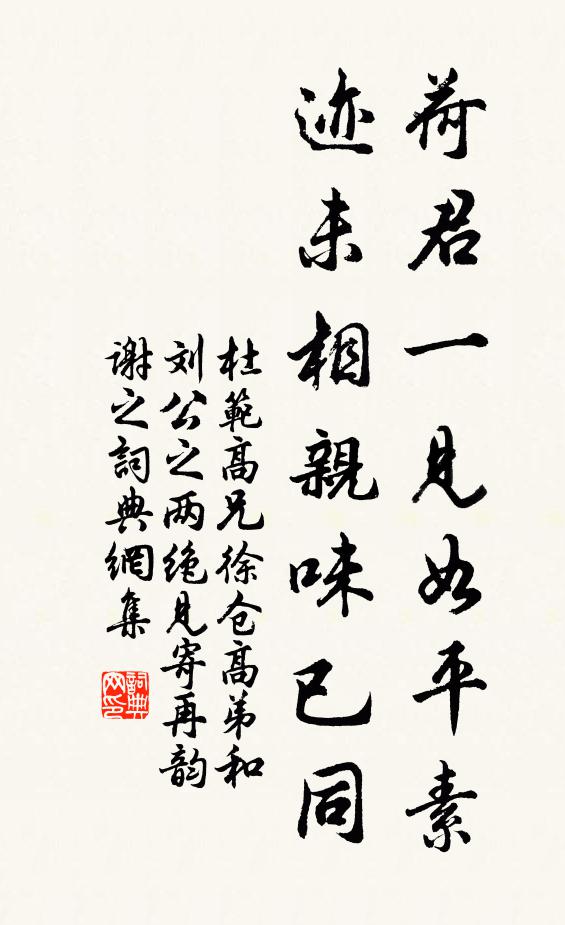 荷君一见如平素
迹未相親味已同
杜範高兄徐仓高弟和
刘公之两绝见寄再韵
谢之詞典網集
詞典网印